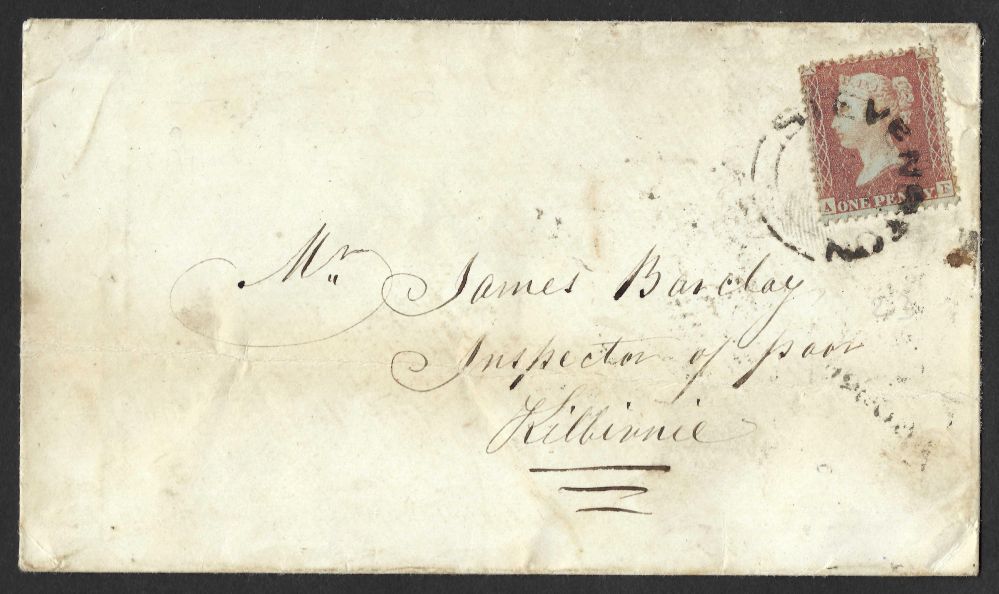 STEVENSTON
A ONE PENNY E
Mr James Barclay
Inspector of poor
Kilbirnie